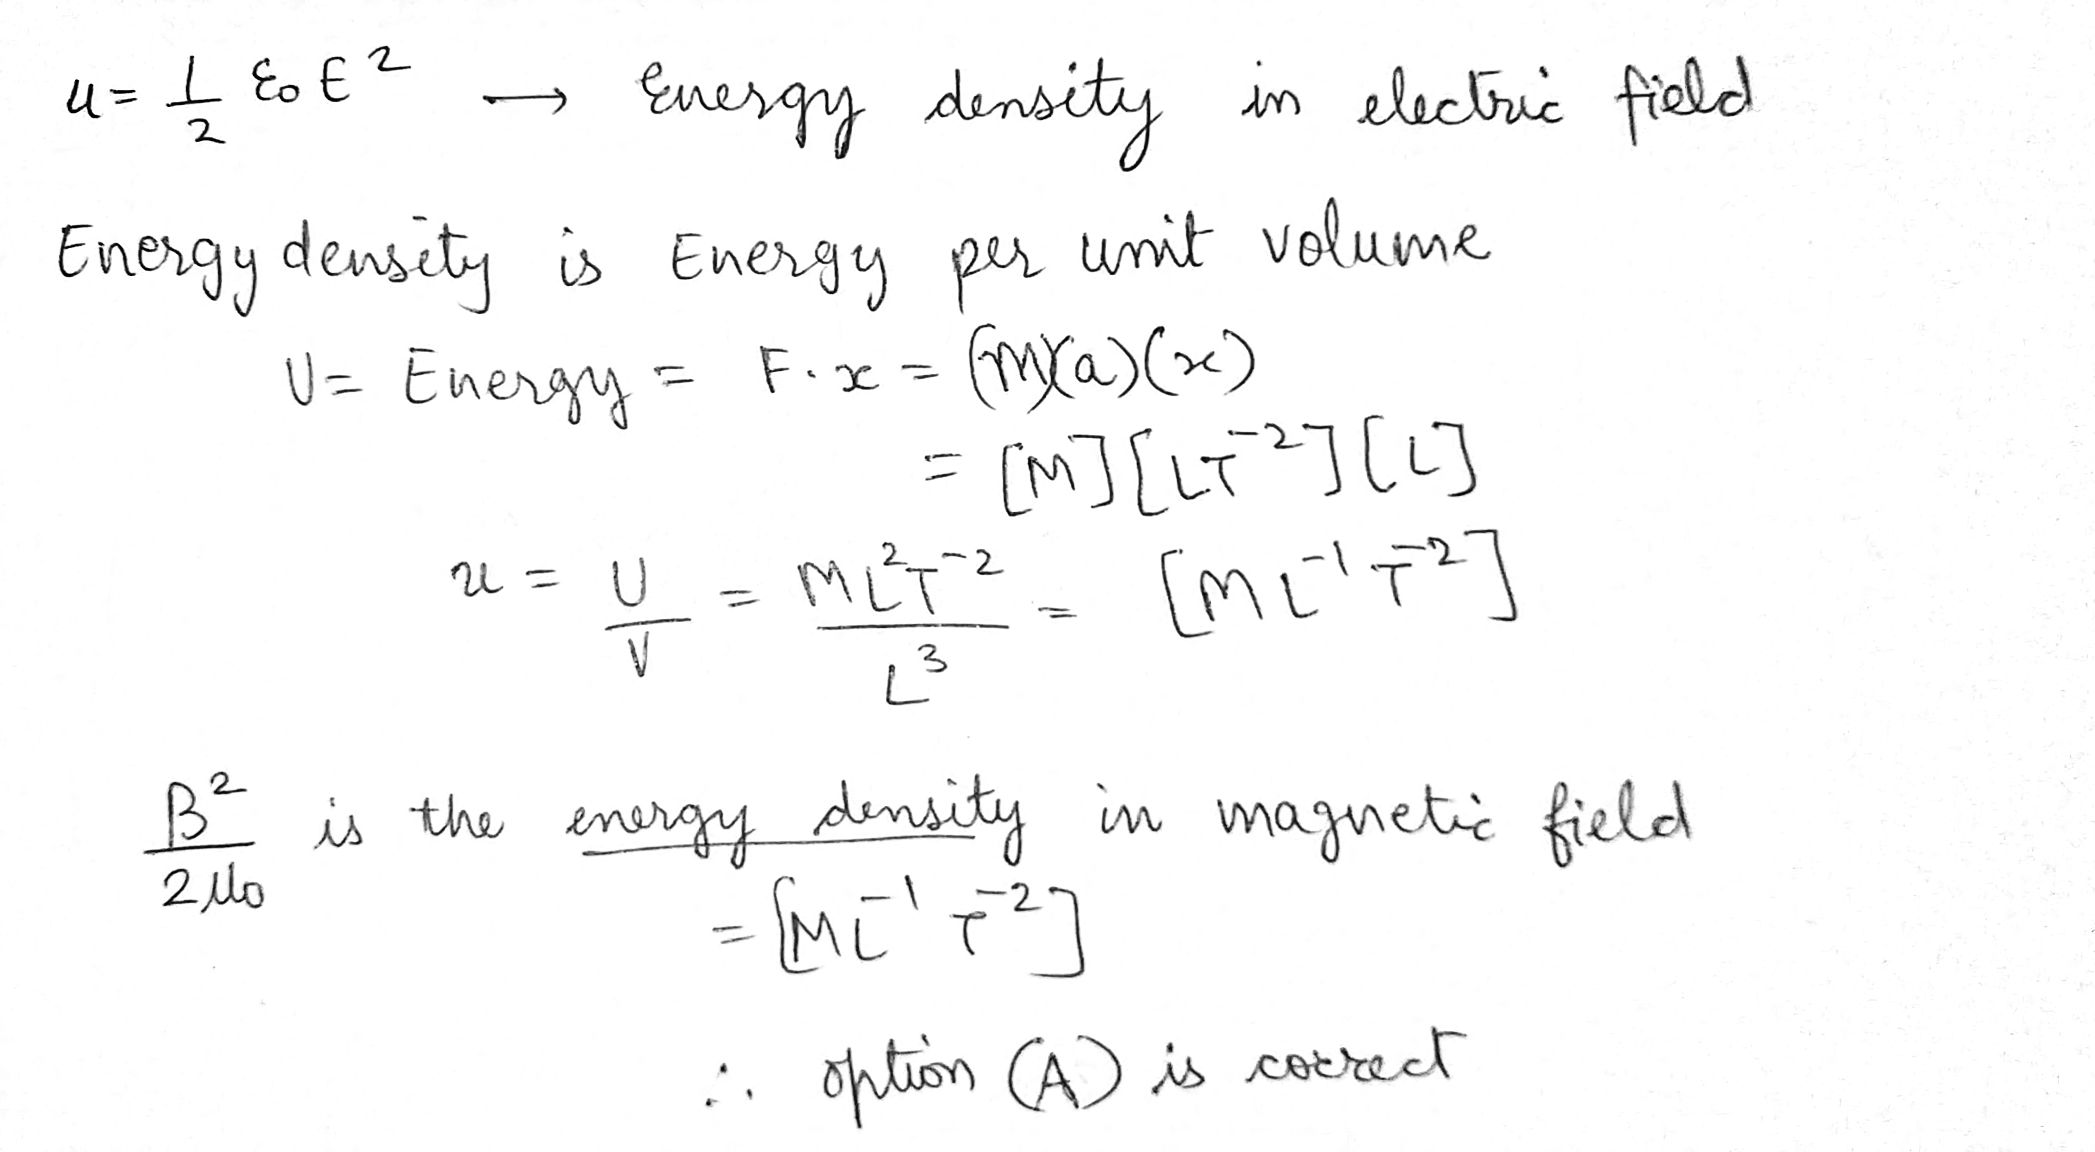 u = 1/2 ε₀ E² → Energy density in electric field
Energy density is Energy per unit volume
U = Energy = F·x = (m)(a)(x)
= [M] [LT⁻²] [L]
u = U/V = ML²T⁻²/L³ = [ML⁻¹T⁻²]
B²/2μ₀ is the energy density in magnetic field
= [ML⁻¹T⁻²]
∴ option (A) is correct